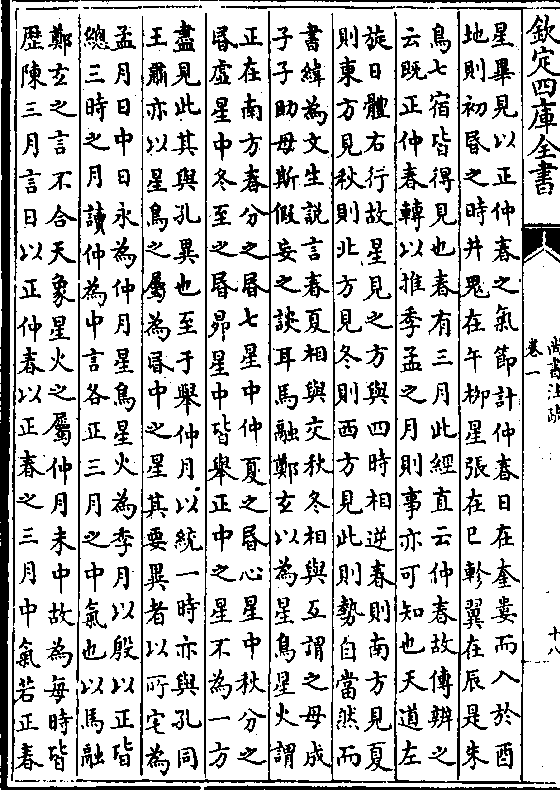 欽定四庫全書
尚書注疏
卷一
十八
星畢見以正仲春之氣節計仲春日在奎婁而入於酉
地則初昏之時井鬼在午柳星張在巳軫翼在辰是朱
鳥七宿皆得見也春有三月此經直云仲春故傳辨之
云既正仲春轉以推季孟之月則事亦可知也天道左
旋日體右行故星見之方與四時相逆春則南方見夏
則東方見秋則北方見冬則西方見此則勢自當然而
書緯為文生說言春夏相與交秋冬相與互謂之母成
子子助母斯假妄之談耳馬融鄭玄以為星鳥星火謂
正在南方春分之昏七星中仲夏之昏心星中秋分之
昏虛星中冬至之昏昴星中皆舉正中之星不為一方
盡見此其與孔異也至于舉仲月以統一時亦與孔同
王肅亦以星鳥之屬為昏中之星其要異者以所宅為
孟月日中日永為仲月星鳥星火為季月以殷以正皆
總三時之月讀仲為中言各正三月之中氣也以馬融
鄭玄之言不合天象星火之屬仲月未中故為每時皆
歴陳三月言日以正仲春以正春之三月中氣若正春